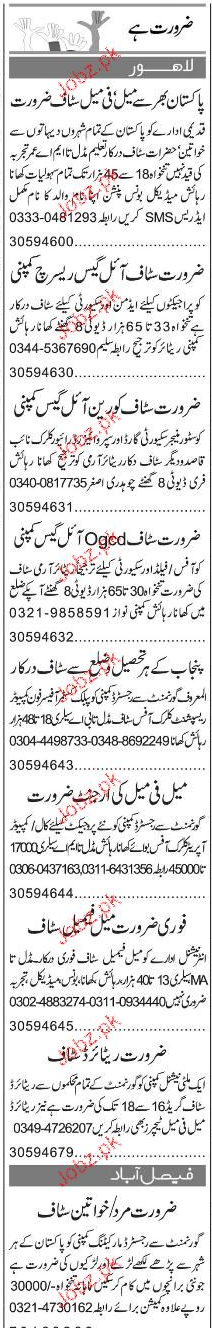 ضرورت ہے
لاہور
پاکستان بھر سے میل، فی میل سٹاف ضرورت
قدیمی ادارے کو پاکستان کے تمام شہروں دیہاتوں سے
خواتین، حضرات سٹاف درکار تعلیم مڈل تا ایم اے عمر تجربہ
کی قید نہیں تنخواہ 18 سے 45 ہزار تک تمام سہولیات کھانا
رہائش میڈیکل بونس پنشن اپنا نام والد کا نام مکمل
ایڈریس SMS کریں رابطہ 0333-0481293
30594600
ضرورت سٹاف آئل گیس ریسرچ کمپنی
کو پراجیکٹوں کیلئے ایڈمن اور سکیورٹی کیلئے سٹاف درکار
ہے تنخواہ 33 تا 65 ہزار ڈیوٹی 8 گھنٹے کھانا رہائش
کمپنی ریٹائر کو ترجیح رابطہ سلیم 0344-5367690
30594630
ضرورت سٹاف کورین آئل گیس کمپنی
کو سٹور منیجر سکیورٹی گارڈ اور سپروائیزر ڈرائیور کلرک نائب
قاصد و دیگر سٹاف درکار ریٹائر آرمی کو ترجیح کھانا رہائش
فری ڈیوٹی 8 گھنٹے چوہدری اصغر 0340-0817735
30594631
ضرورت سٹاف Ogcd آئل گیس کمپنی
کو آفس/فیلڈ اور سکیورٹی کیلئے ترجیحاً ریٹائر آرمی
کی ضرورت تنخواہ 30 تا 65 ہزار ڈیوٹی 8 گھنٹے آپکے ضلع
میں کھانا رہائش کمپنی نواز 0321-9858591
30594632
پنجاب کے ہر تحصیل و ضلع سے سٹاف درکار
المعروف گورنمنٹ سے رجسٹرڈ کمپنی کو پبلک ریلیشن آفیسر فون کمپیوٹر
ریسپشنسٹ کلرک آفس سٹاف مڈل تا بی اے سیلری 18 تا 48 ہزار
رہائش کھانا 0304-4498733-0348-8692249
30594643
میل فی میل کی ارجنٹ ضرورت
گورنمنٹ سے رجسٹرڈ کمپنی کو نئے پروجیکٹ کیلئے کال/کمپیوٹر
آپریٹر کلرک آفس بوائے کھانا رہائش مڈل تا ایم اے سیلری 17000
تا 45000 رابطہ 0306-0437163,0311-6431356
30594644
فوری ضرورت میل فیمیل سٹاف
انٹرنیشنل ادارے کو میل فیمیل سٹاف فوری درکار۔ مڈل تا
MA سیلری 13 تا 40 ہزار رہائش کھانا، بونس، میڈیکل، تجربہ
ضروری نہیں 0302-4883274-0311-0934440
30594645
ضرورت ریٹائرڈ سٹاف
ایک ملٹی نیشنل کمپنی کو گورنمنٹ کے تمام محکموں سے ریٹائرڈ
سٹاف گریڈ 16 سے 18 تک کی ضرورت ہے نیز ریٹائرڈ
میل فی میل ٹیچرز بھی رابطہ کریں 0349-4726207
30594679
فیصل آباد
ضرورت مرد/خواتین سٹاف
گورنمنٹ سے رجسٹرڈ مارکیٹنگ کمپنی کو پاکستان کے ہر
شہر سے پڑھے لکھے لڑکے اور لڑکیوں کی ضرورت ہے
جو نئی برانچوں میں کام کر سکیں ماہانہ تنخواہ -/30000
روپے علاوہ کمیشن برائے رابطہ 0321-4730162
Jobz.pk